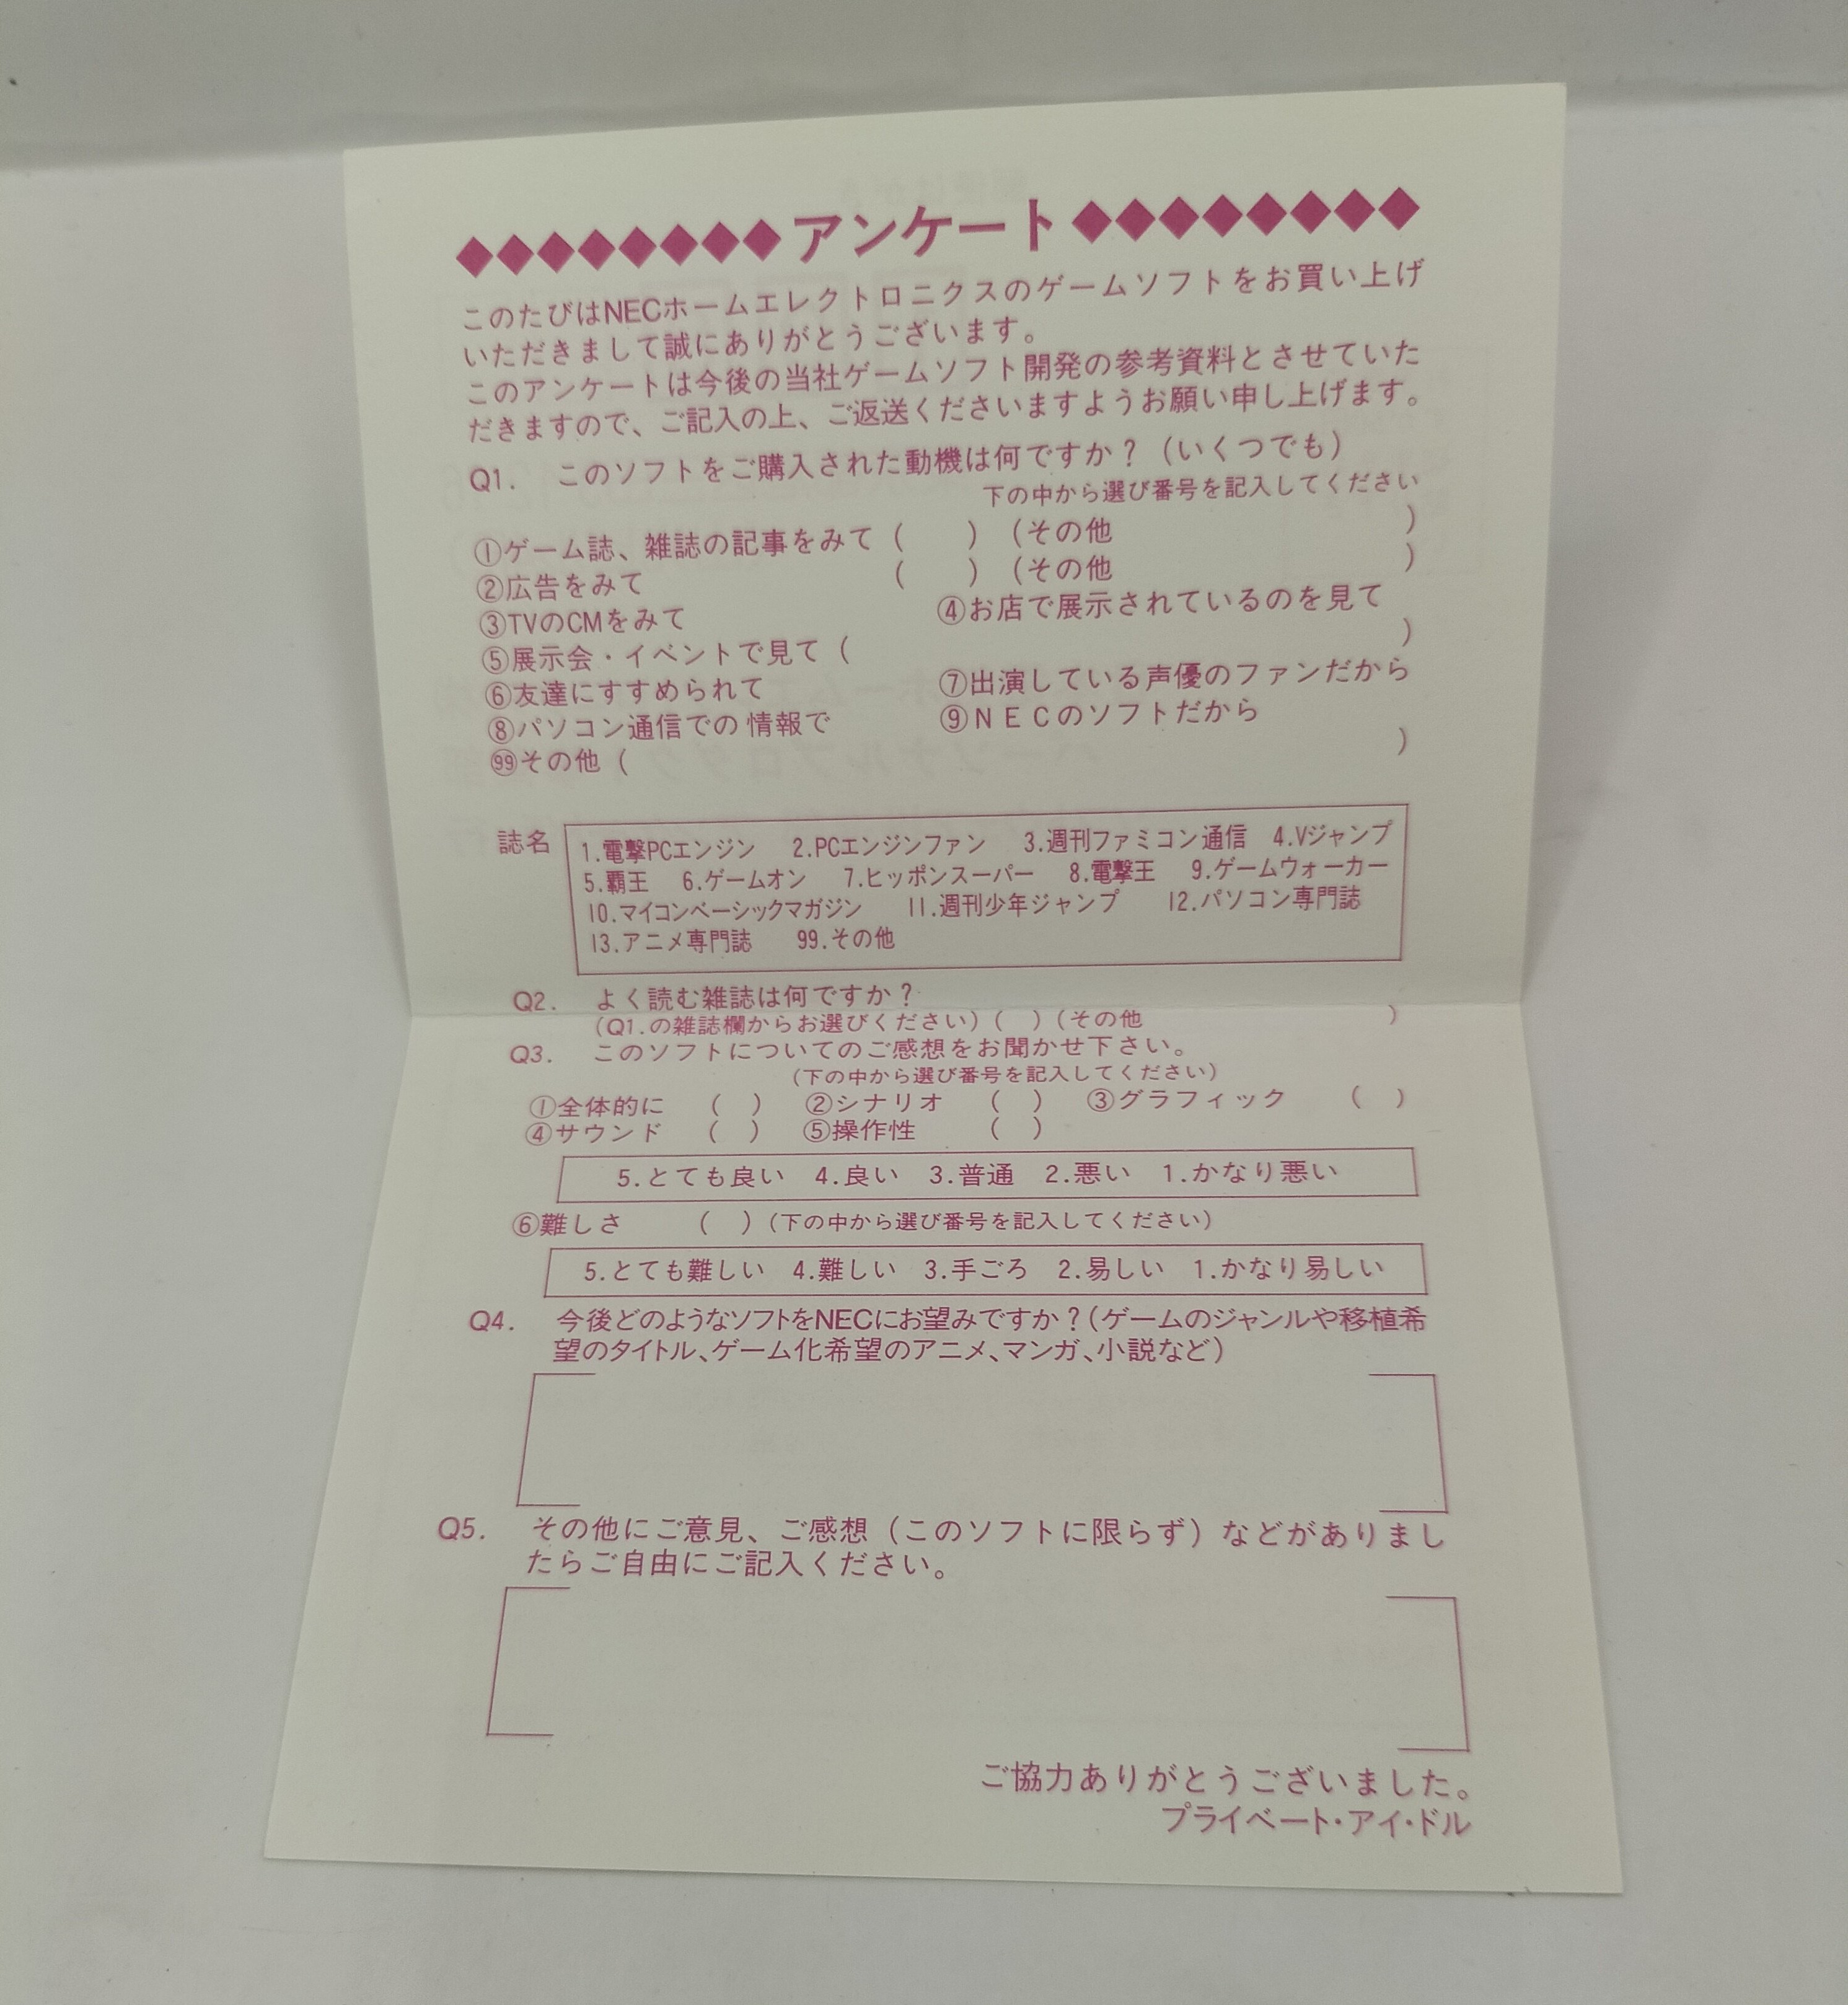 ◆◆◆◆◆◆◆◆アンケート◆◆◆◆◆◆◆◆
このたびはNECホームエレクトロニクスのゲームソフトをお買い上げ
いただきまして誠にありがとうございます。
このアンケートは今後の当社ゲームソフト開発の参考資料とさせていた
だきますので、ご記入の上、ご返送くださいますようお願い申し上げます。
Q1. このソフトをご購入された動機は何ですか？（いくつでも）
下の中から選び番号を記入してください
①ゲーム誌、雑誌の記事をみて（　　）（その他　　　　　　　　）
②広告をみて　　　　　　　　（　　）（その他　　　　　　　　）
③TVのCMをみて　　④お店で展示されているのを見て
⑤展示会・イベントで見て（　　　　　　　　　　　　　　）
⑥友達にすすめられて　　⑦出演している声優のファンだから
⑧パソコン通信での情報で　　⑨ＮＥＣのソフトだから
㊾その他（　　　　　　　　　　　　　　　　　　　　　　）
誌名 1.電撃PCエンジン 2.PCエンジンファン 3.週刊ファミコン通信 4.Vジャンプ
5.覇王 6.ゲームオン 7.ヒッポンスーパー 8.電撃王 9.ゲームウォーカー
10.マイコンベーシックマガジン 11.週刊少年ジャンプ 12.パソコン専門誌
13.アニメ専門誌 99.その他
Q2. よく読む雑誌は何ですか？
（Q1.の雑誌欄からお選びください）（　）（その他　　　　　　　　）
Q3. このソフトについてのご感想をお聞かせ下さい。
（下の中から選び番号を記入してください）
①全体的に（　） ②シナリオ（　） ③グラフィック（　）
④サウンド（　） ⑤操作性（　）
5.とても良い 4.良い 3.普通 2.悪い 1.かなり悪い
⑥難しさ（　）（下の中から選び番号を記入してください）
5.とても難しい 4.難しい 3.手ごろ 2.易しい 1.かなり易しい
Q4. 今後どのようなソフトをNECにお望みですか？（ゲームのジャンルや移植希
望のタイトル、ゲーム化希望のアニメ、マンガ、小説など）
Q5. その他にご意見、ご感想（このソフトに限らず）などがありまし
たらご自由にご記入ください。
ご協力ありがとうございました。
プライベート・アイ・ドル